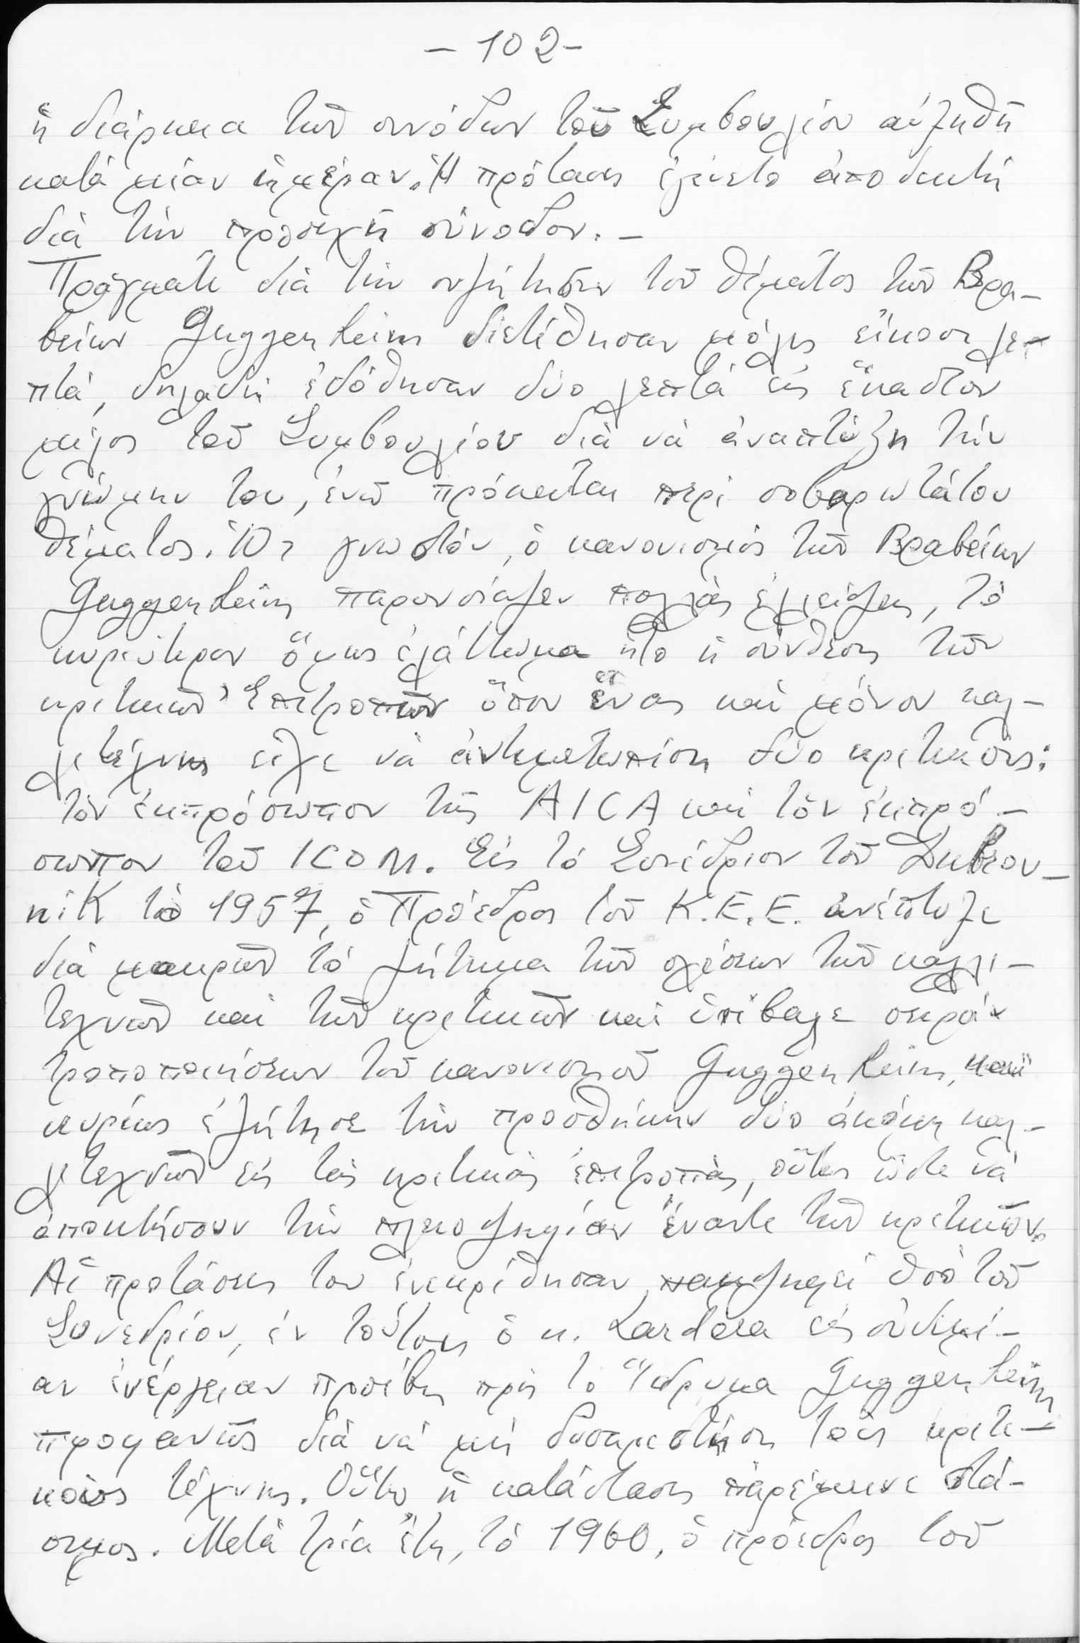 - 102 -
ἡ διάρκεια τῶν συνόδων τοῦ Συμβουλίου αὐξηθῆ
κατὰ μίαν ἡμέραν. Ἡ πρότασις ἐγένετο ἀποδεκτή
διὰ τὴν προσεχῆ σύνοδον. -
Πράγματι διὰ τὴν συζήτησιν τοῦ θέματος τῶν Βρα-
βείων Guggenheim διετέθησαν μόλις εἴκοσι λε-
πτά, δηλαδὴ ἐδόθησαν δύο λεπτὰ εἰς ἕκαστον
μέλος τοῦ Συμβουλίου διὰ νὰ ἀναπτύξη τὴν
γνώμην του, ἐνῶ πρόκειται περὶ σοβαρωτάτου
θέματος. Ὡς γνωστόν, ὁ κανονισμὸς τῶν Βραβείων
Guggenheim παρουσίαζεν πολλὰς ἐλλείψεις, τὸ
κυριώτερον ὅμως ἐλάττωμα ἦτο ἡ σύνθεσις τῶν
κριτικῶν Ἐπιτροπῶν ὅπου ἕνας καὶ μόνον καλ-
λιτέχνης εἶχε νὰ ἀντιμετωπίση δύο κριτικούς:
τὸν ἐκπρόσωπον τῆς AICA καὶ τὸν ἐκπρό-
σωπον τοῦ ICOM. Εἰς τὸ Συνέδριον τοῦ Ντυβρου-
νὶκ τὸ 1957, ὁ Πρόεδρος τοῦ Κ.Ε.Ε. ἀνέπτυξε
διὰ μακρῶν τὸ ζήτημα τῶν σχέσεων τῶν καλλι-
τεχνῶν καὶ τῶν κριτικῶν καὶ ὑπέβαλε σειρὰν
τροποποιήσεων τοῦ κανονισμοῦ Guggenheim, καὶ
κυρίως ἐζήτησε τὴν προσθήκην δύο ἀκόμη καλ-
λιτεχνῶν εἰς τὰς κριτικὰς ἐπιτροπάς, οὕτως ὥστε νὰ
ἀποκτήσουν τὴν πλειοψηφίαν ἔναντι τῶν κριτικῶν.
Αἱ προτάσεις του ἐνεκρίθησαν παμψηφεὶ ὑπὸ τοῦ
Συνεδρίου, ἐν τούτοις ὁ κ. Lardera εἰς οὐδεμί-
αν ἐνέργειαν προέβη πρὸς τὸ Ἵδρυμα Guggenheim
προφανῶς διὰ νὰ μὴ δυσαρεστήση τοὺς κριτι-
κοὺς τέχνης. Οὕτω ἡ κατάστασις παρέμεινε στά-
σιμος. Μετὰ τρία ἔτη, τὸ 1960, ὁ πρόεδρος τοῦ